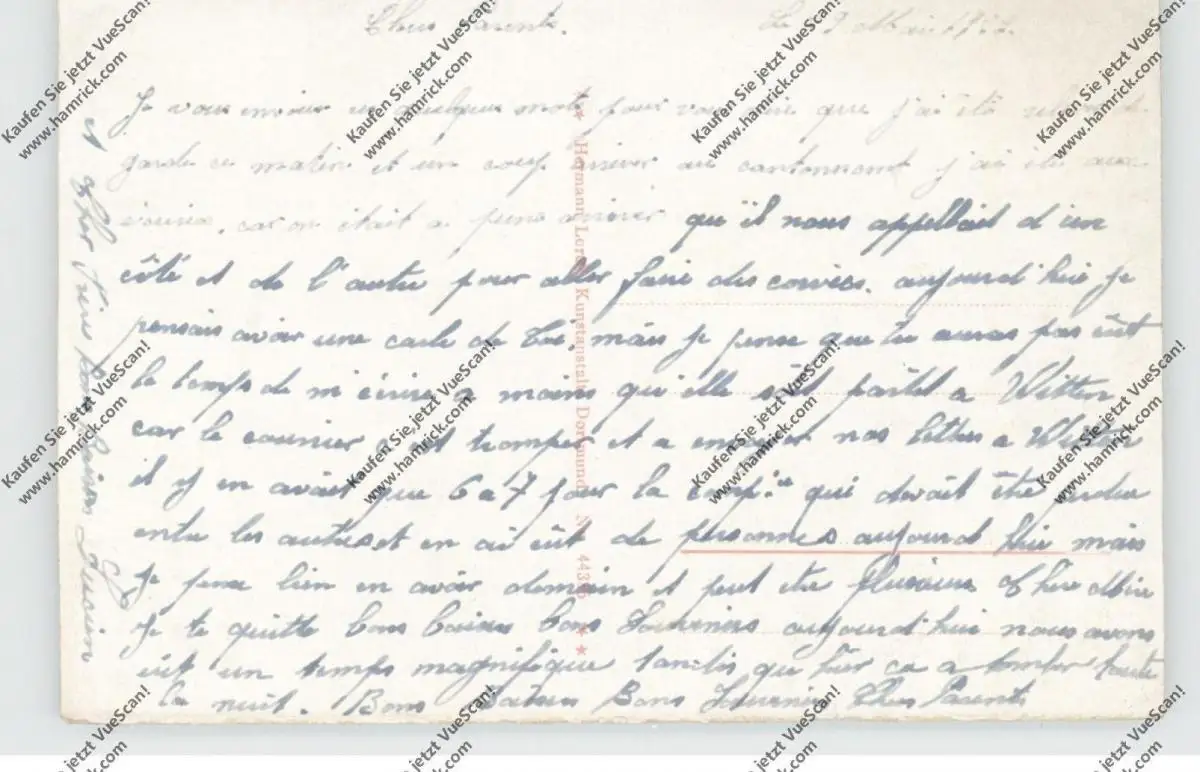 Chers Parents. Le 9 Mai
Je vous envoie quelques mots pour vous dire que j'ai été de
garde ce matin et un coup arriver au cantonnement j'ai été
car on était a peine arriver qu'il nous appellait d'un
côté et de l'autre pour aller faire des corvées. aujourd'hui je
pensais avoir une carte de toi, mais je pense que tu auras pas eût
le temps de m'écrire a moins qu'elle soit partit a Witten
car le courrier a est tromper et a envoyer nos lettres a Witten
il y en avait que 6 a 7 pour la comp.ie qui devait être perdue
entre les autres et en ai eût de personnes aujourd'hui mais
je pense bien en avoir demain et peut être plusieurs Chère Mère
Je te quitte bons baisers bons Souvenirs aujourd'hui nous avons
eût un temps magnifique tandis que hier ca a tomber toute
la nuit. Bons Baisers Bons Souvenirs Chers Parents
et cher Frère bons baisers Lucien
Hermann Lorch Kunstanstalt Dortmund
Kaufen Sie jetzt VueScan!
www.hamrick.com